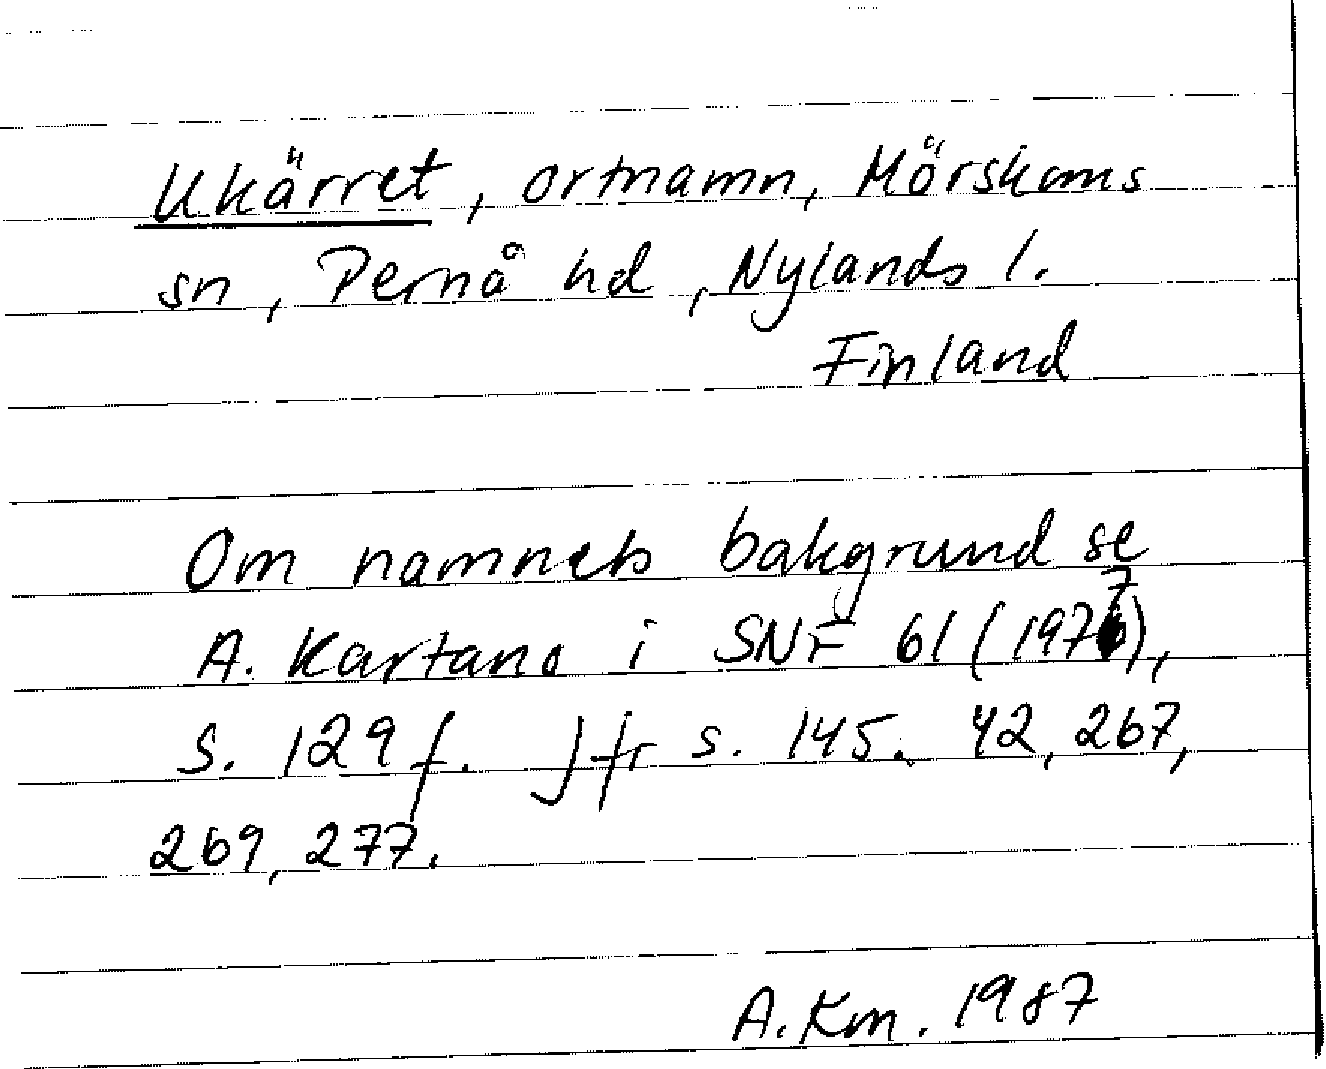 Ukärret, ortnamn, Mörskoms
sn, Pernå hd, Nylands l.
Finland
Om namnets bakgrund se
A. Kartano i SNF 61 (1977),
s. 129 f. Jfr s. 145. 42, 267,
269, 277.
A. Km. 1987